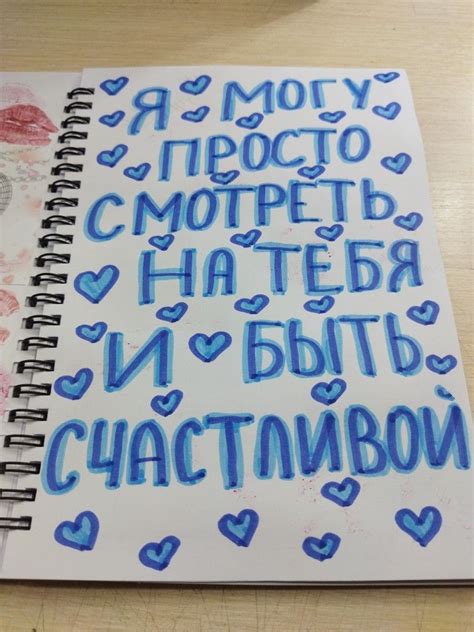 Я МОГУ
ПРОСТО
СМОТРЕТЬ
НА ТЕБЯ
И БЫТЬ
СЧАСТЛИВОЙ